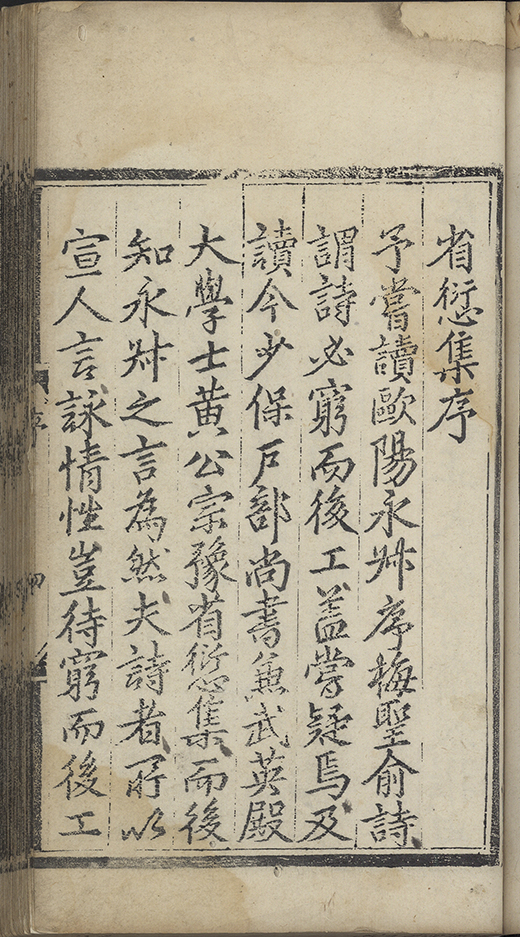 省愆集序
予嘗讀歐陽永叔序梅聖俞詩
謂詩必窮而後工盖嘗疑焉及
讀今少保戶部尚書兼武英殿
大學士黃公宗豫省愆集而後
知永叔之言為然夫詩者所以
宣人言詠情性豈待窮而後工
序
四